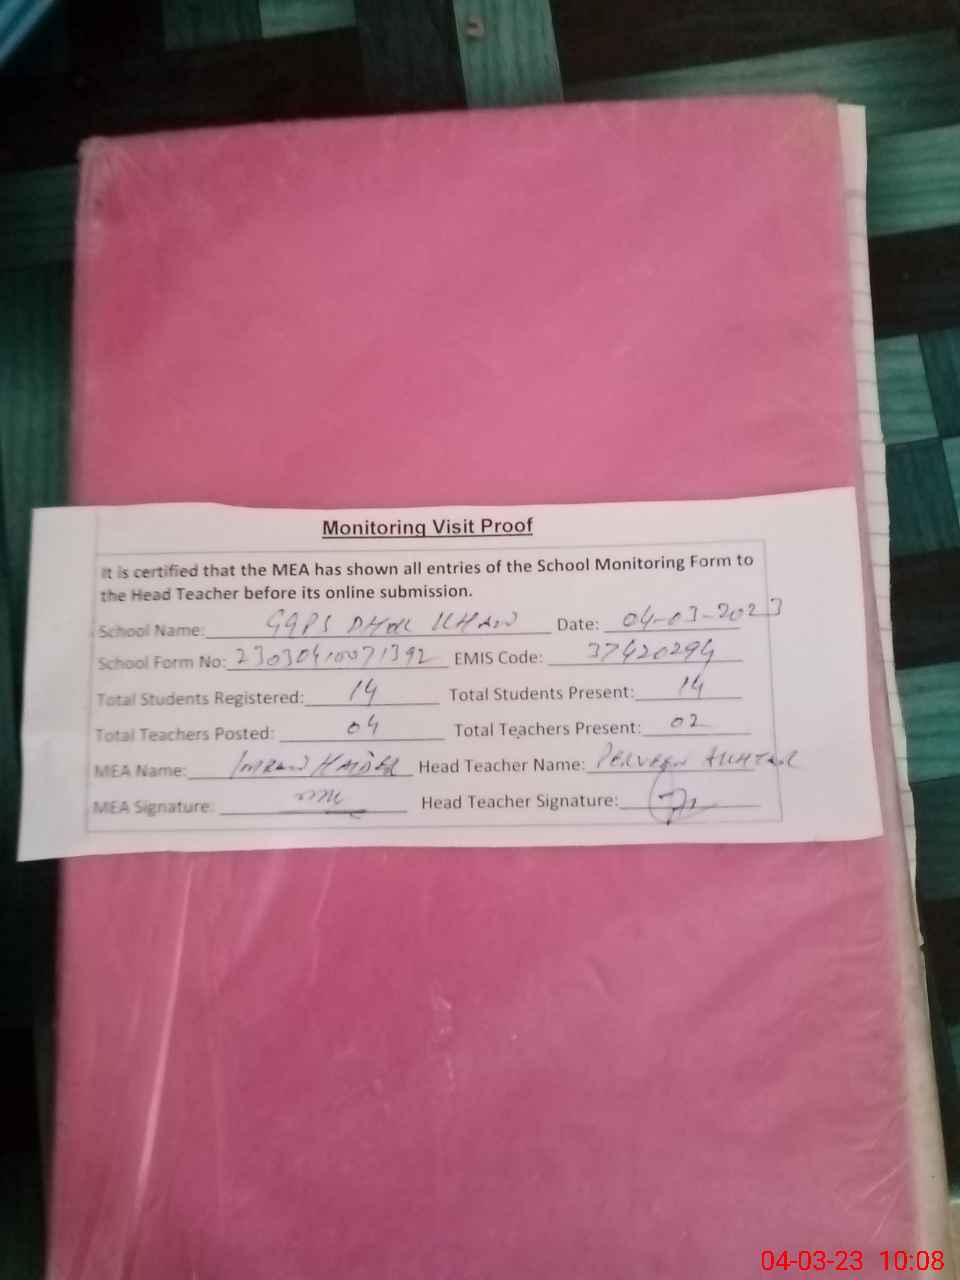 Monitoring Visit Proof
It is certified that the MEA has shown all entries of the School Monitoring Form to
the Head Teacher before its online submission.
School Name: GGPS DHOK KHAN Date: 04-03-2023
School Form No: 23030410071392 EMIS Code: 37420294
Total Students Registered: 14 Total Students Present: 14
Total Teachers Posted: 04 Total Teachers Present: 02
MEA Name: IMRAN HAIDER Head Teacher Name: PERVEEN AKHTAR
MEA Signature: Head Teacher Signature:
04-03-23 10:08